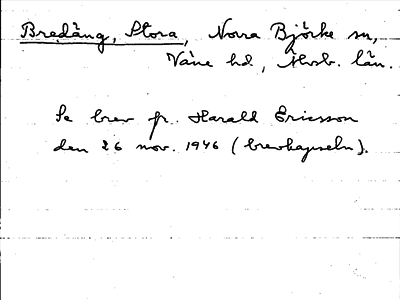 Bredäng, Stora, Norra Björke sn,
Väne hd, Älvsb. län.
Se brev fr. Harald Ericsson
den 26 nov. 1946 (brevkapseln).